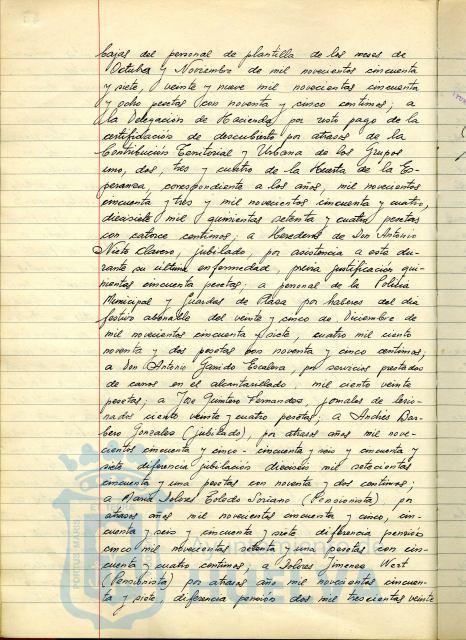 bajas del personal de plantilla de los meses de
Octubre y Noviembre de mil novecientos cincuenta
y siete, veinte y nueve mil novecientos cincuenta
y ocho pesetas con noventa y cinco centimos; a
la Delegación de Hacienda por resto pago de la
certificación de descubierto por atrasos de la
Contribución Territorial y Urbana de los Grupos
uno, dos, tres y cuatro de la Huerta de la Es-
peranza, correspondiente a los años, mil novecientos
cincuenta y tres y mil novecientos cincuenta y cuatro,
diecisiete mil quinientas setenta y cuatro pesetas
con catorce centimos; a Herederos de Don Antonio
Nieto Clavero, jubilado, por asistencia a este du-
rante su ultima enfermedad, previa justificación qui-
nientas cincuenta pesetas; a personal de la Policia
Municipal y Guardas de Plaza por haberes del dia
festivo abonable del veinte y cinco de Diciembre de
mil novecientos cincuenta y siete, cuatro mil ciento
noventa y dos pesetas con noventa y cinco centimos;
a Don Antonio Garrido Escalera, por servicios prestados
de carros en el alcantarillado, mil ciento veinte
pesetas; a Jose Quintero Fernandez, jornales de lesio-
nados ciento veinte y cuatro pesetas; a Andrés Bar-
bero Gonzales (jubilado), por atrasos años mil nove-
cientos cincuenta y cinco - cincuenta y seis y cincuenta y
siete diferencia jubilación dieciseis mil setecientas
cincuenta y una pesetas con noventa y dos centimos;
a Maria Dolores Toledo Soriano (Pensionista) por
atrasos años mil novecientos cincuenta y cinco, cin-
cuenta y seis y cincuenta y siete diferencia pensión
cinco mil novecientas setenta y una pesetas con cin-
cuenta y cuatro centimos; a Dolores Jimenez Wert
(Pensionista) por atrasos año mil novecientos cincuen-
ta y siete diferencia pensión dos mil trescientas veinte